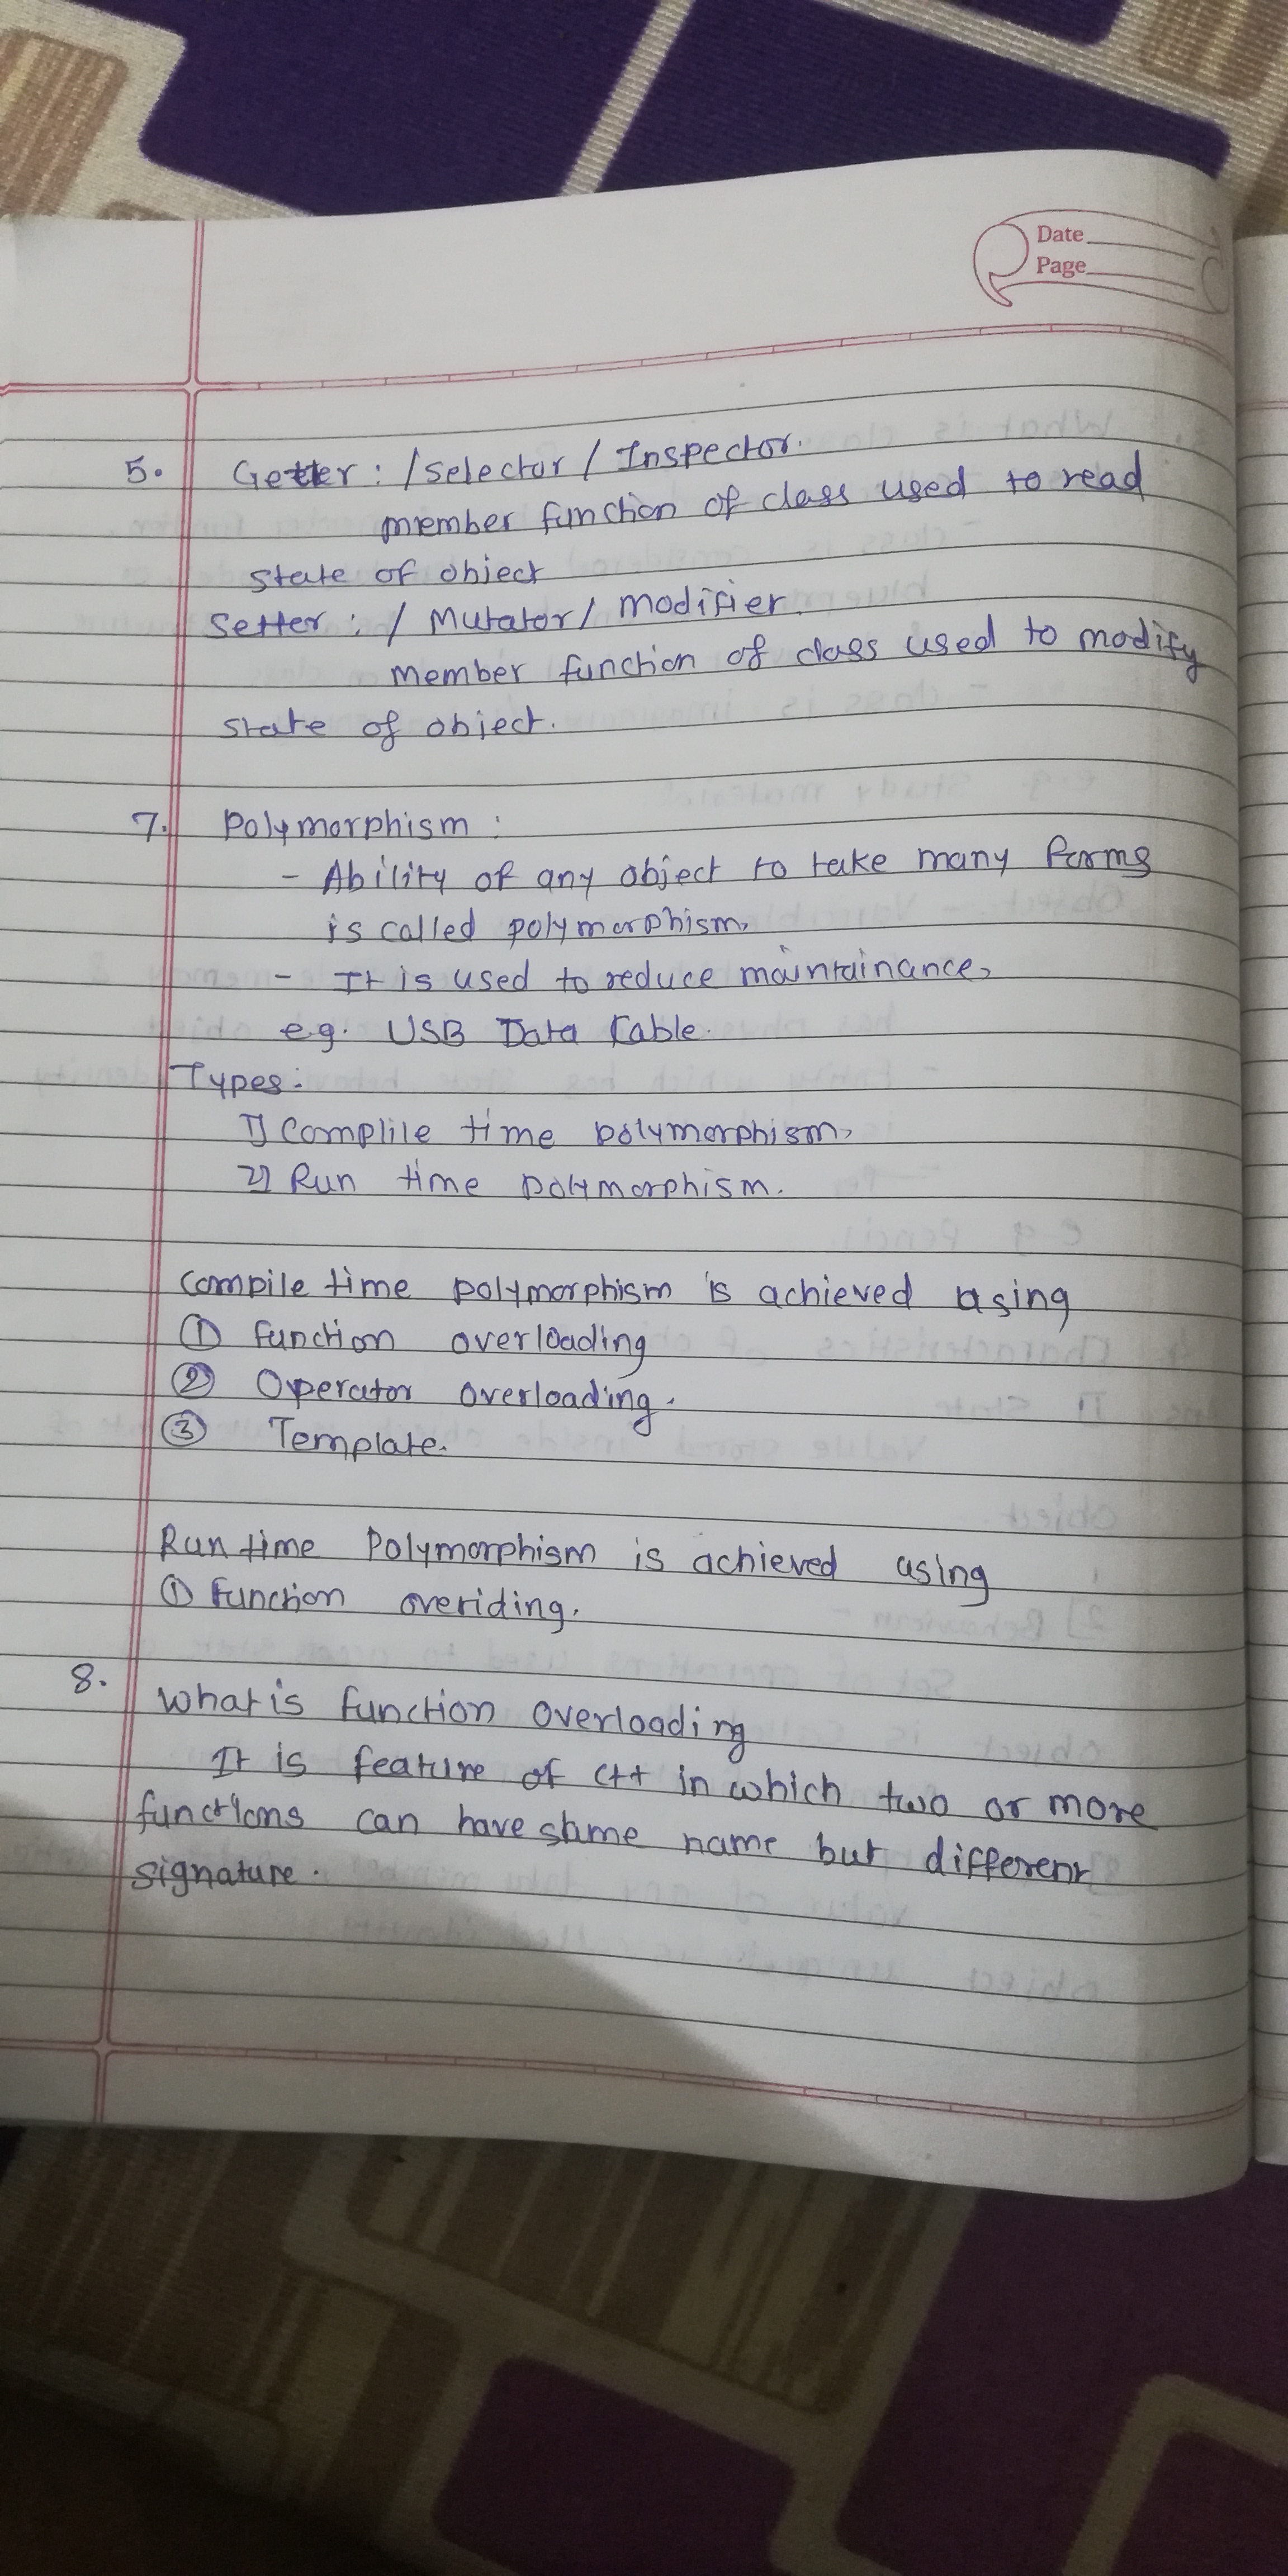 Date
Page
5. Getter : / Selector / Inspector.
member function of class used to read
state of object
Setter : / Mutator / modifier.
member function of class used to modify
state of object.
7. Polymorphism :
- Ability of any object to take many forms
is called polymorphism.
- It is used to reduce maintainance.
eg. USB Data Cable.
Types:
1] Complile time polymorphism.
2] Run time polymorphism.
compile time polymorphism is achieved using
① function overloading
② Operator overloading.
③ Template.
Run time Polymorphism is achieved using
① Function overiding.
8. What is function overloading
It is feature of C++ in which two or more
functions can have same name but different
signature.